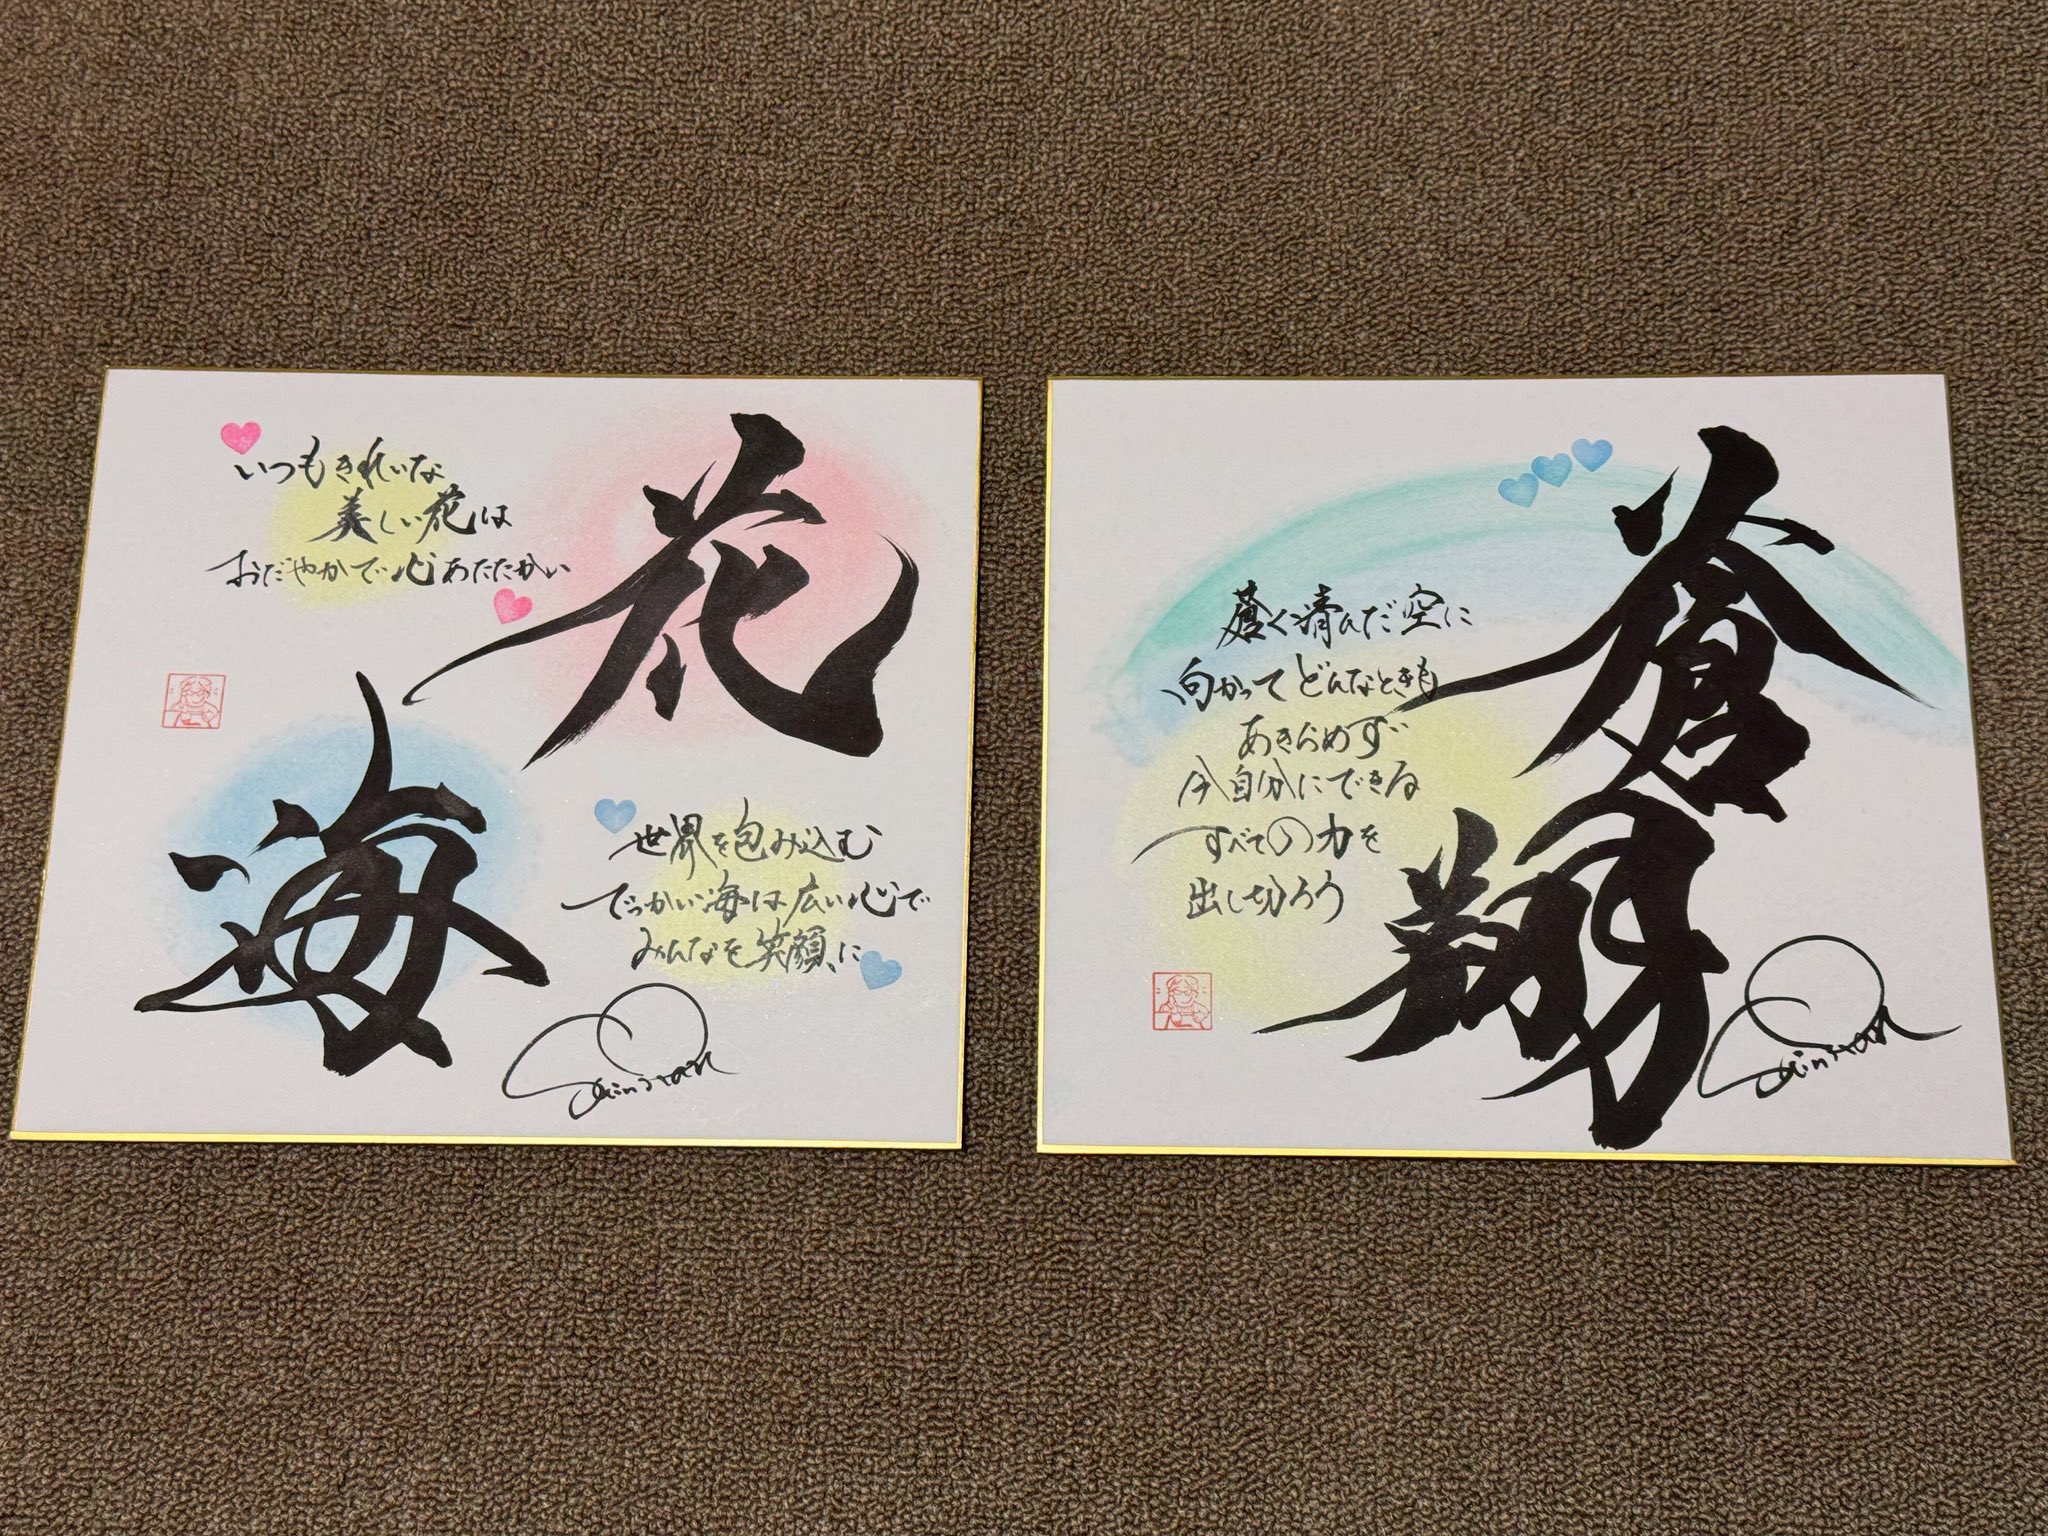 花
いつもきれいな
美しい花は
おだやかで心あたたかい
海
世界を包み込む
でっかい海は広い心で
みんなを笑顔に
蒼
翔
蒼く清んだ空に
向かってどんなときも
あきらめず
今自分にできる
すべての力を
出し切ろう